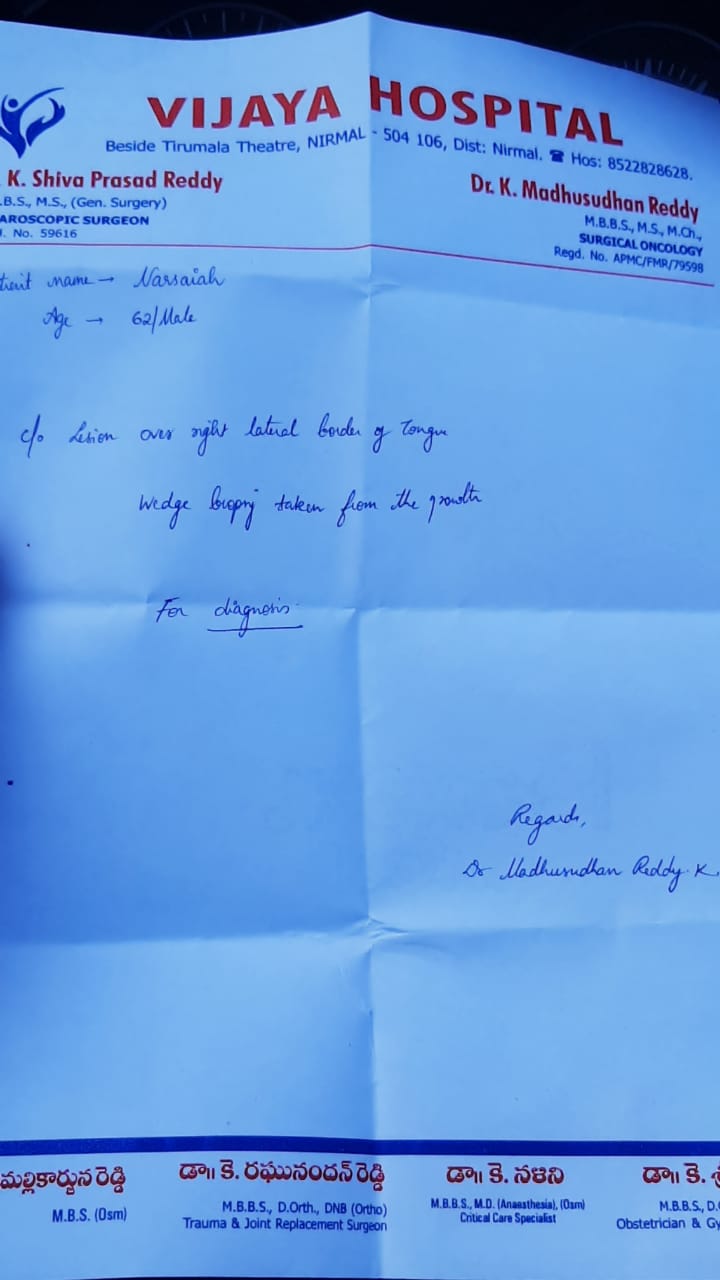 VIJAYA HOSPITAL
Beside Tirumala Theatre, NIRMAL - 504 106, Dist: Nirmal. ☎ Hos: 8522828628.
K. Shiva Prasad Reddy
.B.S., M.S., (Gen. Surgery)
AROSCOPIC SURGEON
. No. 59616
Dr. K. Madhusudhan Reddy
M.B.B.S., M.S., M.Ch.,
SURGICAL ONCOLOGY
Regd. No. APMC/FMR/79598
tient name → Narsaiah
Age → 62/Male
c/o Lesion over right lateral border of Tongue
Wedge biopsy taken from the growth
For diagnosis.
Regards,
Dr Madhusudhan Reddy. K
మల్లికార్జున రెడ్డి
M.B.S. (Osm)
డా॥ కె. రఘునందన్ రెడ్డి
M.B.B.S., D.Orth., DNB (Ortho)
Trauma & Joint Replacement Surgeon
డా॥ కె. నళిని
M.B.B.S., M.D. (Anaesthesia), (Osm)
Critical Care Specialist
డా॥ కె.
M.B.B.S., D.
Obstetrician & Gy